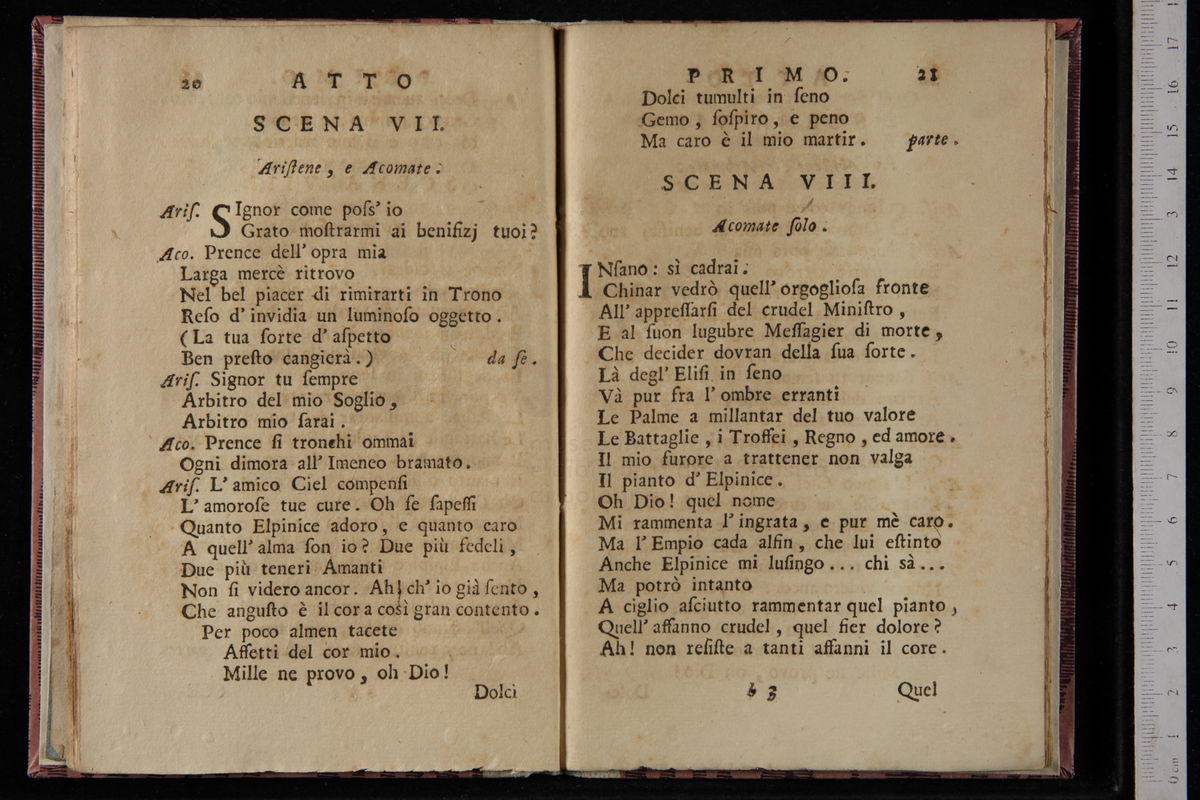 20 ATTO
SCENA VII.
Ariſtene, e Acomate.
Ariſ. SIgnor come poſs' io
Grato moſtrarmi ai benifizj tuoi?
Aco. Prence dell' opra mia
Larga mercè ritrovo
Nel bel piacer di rimirarti in Trono
Reſo d' invidia un luminoſo oggetto.
(La tua ſorte d' aſpetto
Ben preſto cangierà.) da ſe.
Ariſ. Signor tu ſempre
Arbitro del mio Soglio,
Arbitro mio ſarai.
Aco. Prence ſi tronchi ommai
Ogni dimora all' Imeneo bramato.
Ariſ. L' amico Ciel compenſi
L' amoroſe tue cure. Oh ſe ſapeſſi
Quanto Elpinice adoro, e quanto caro
A quell' alma ſon io? Due più fedeli,
Due più teneri Amanti
Non ſi videro ancor. Ah! ch' io già ſento,
Che anguſto è il cor a così gran contento.
Per poco almen tacete
Affetti del cor mio.
Mille ne provo, oh Dio!
Dolci
PRIMO. 21
Dolci tumulti in ſeno
Gemo, ſoſpiro, e peno
Ma caro è il mio martir. parte.
SCENA VIII.
Acomate ſolo.
INſano: sì cadrai.
Chinar vedrò quell' orgoglioſa fronte
All' appreſſarſi del crudel Miniſtro,
E al ſuon lugubre Meſſagier di morte,
Che decider dovran della ſua ſorte.
Là degl' Eliſi in ſeno
Và pur fra l' ombre erranti
Le Palme a millantar del tuo valore
Le Battaglie, i Troffei, Regno, ed amore.
Il mio furore a trattener non valga
Il pianto d' Elpinice.
Oh Dio! quel nome
Mi rammenta l' ingrata, e pur mè caro.
Ma l' Empio cada alfin, che lui eſtinto
Anche Elpinice mi luſingo... chi sà...
Ma potrò intanto
A ciglio aſciutto rammentar quel pianto,
Quell' affanno crudel, quel fier dolore?
Ah! non reſiſte a tanti affanni il core.
b 3 Quel
0 cm 1 2 3 4 5 6 7 8 9 10 11 12 13 14 15 16 17